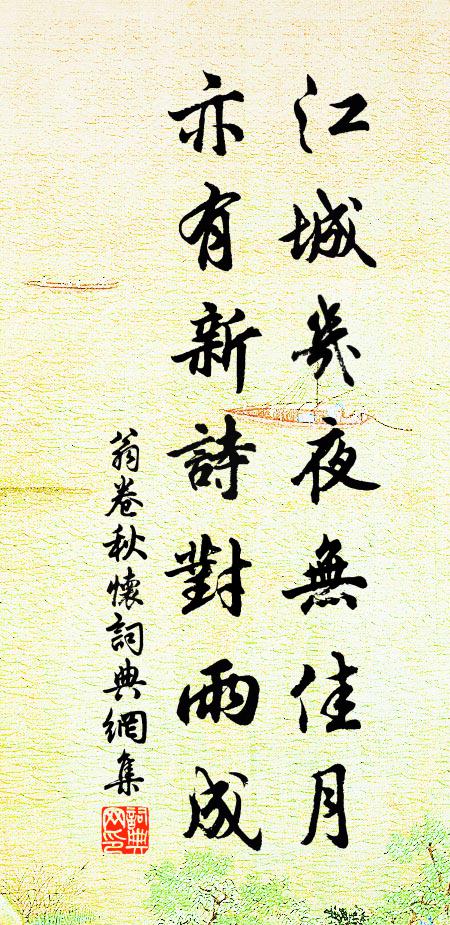 江城幾夜無佳月
亦有新詩對雨成
翁卷秋懷詞典網集
詞典網印